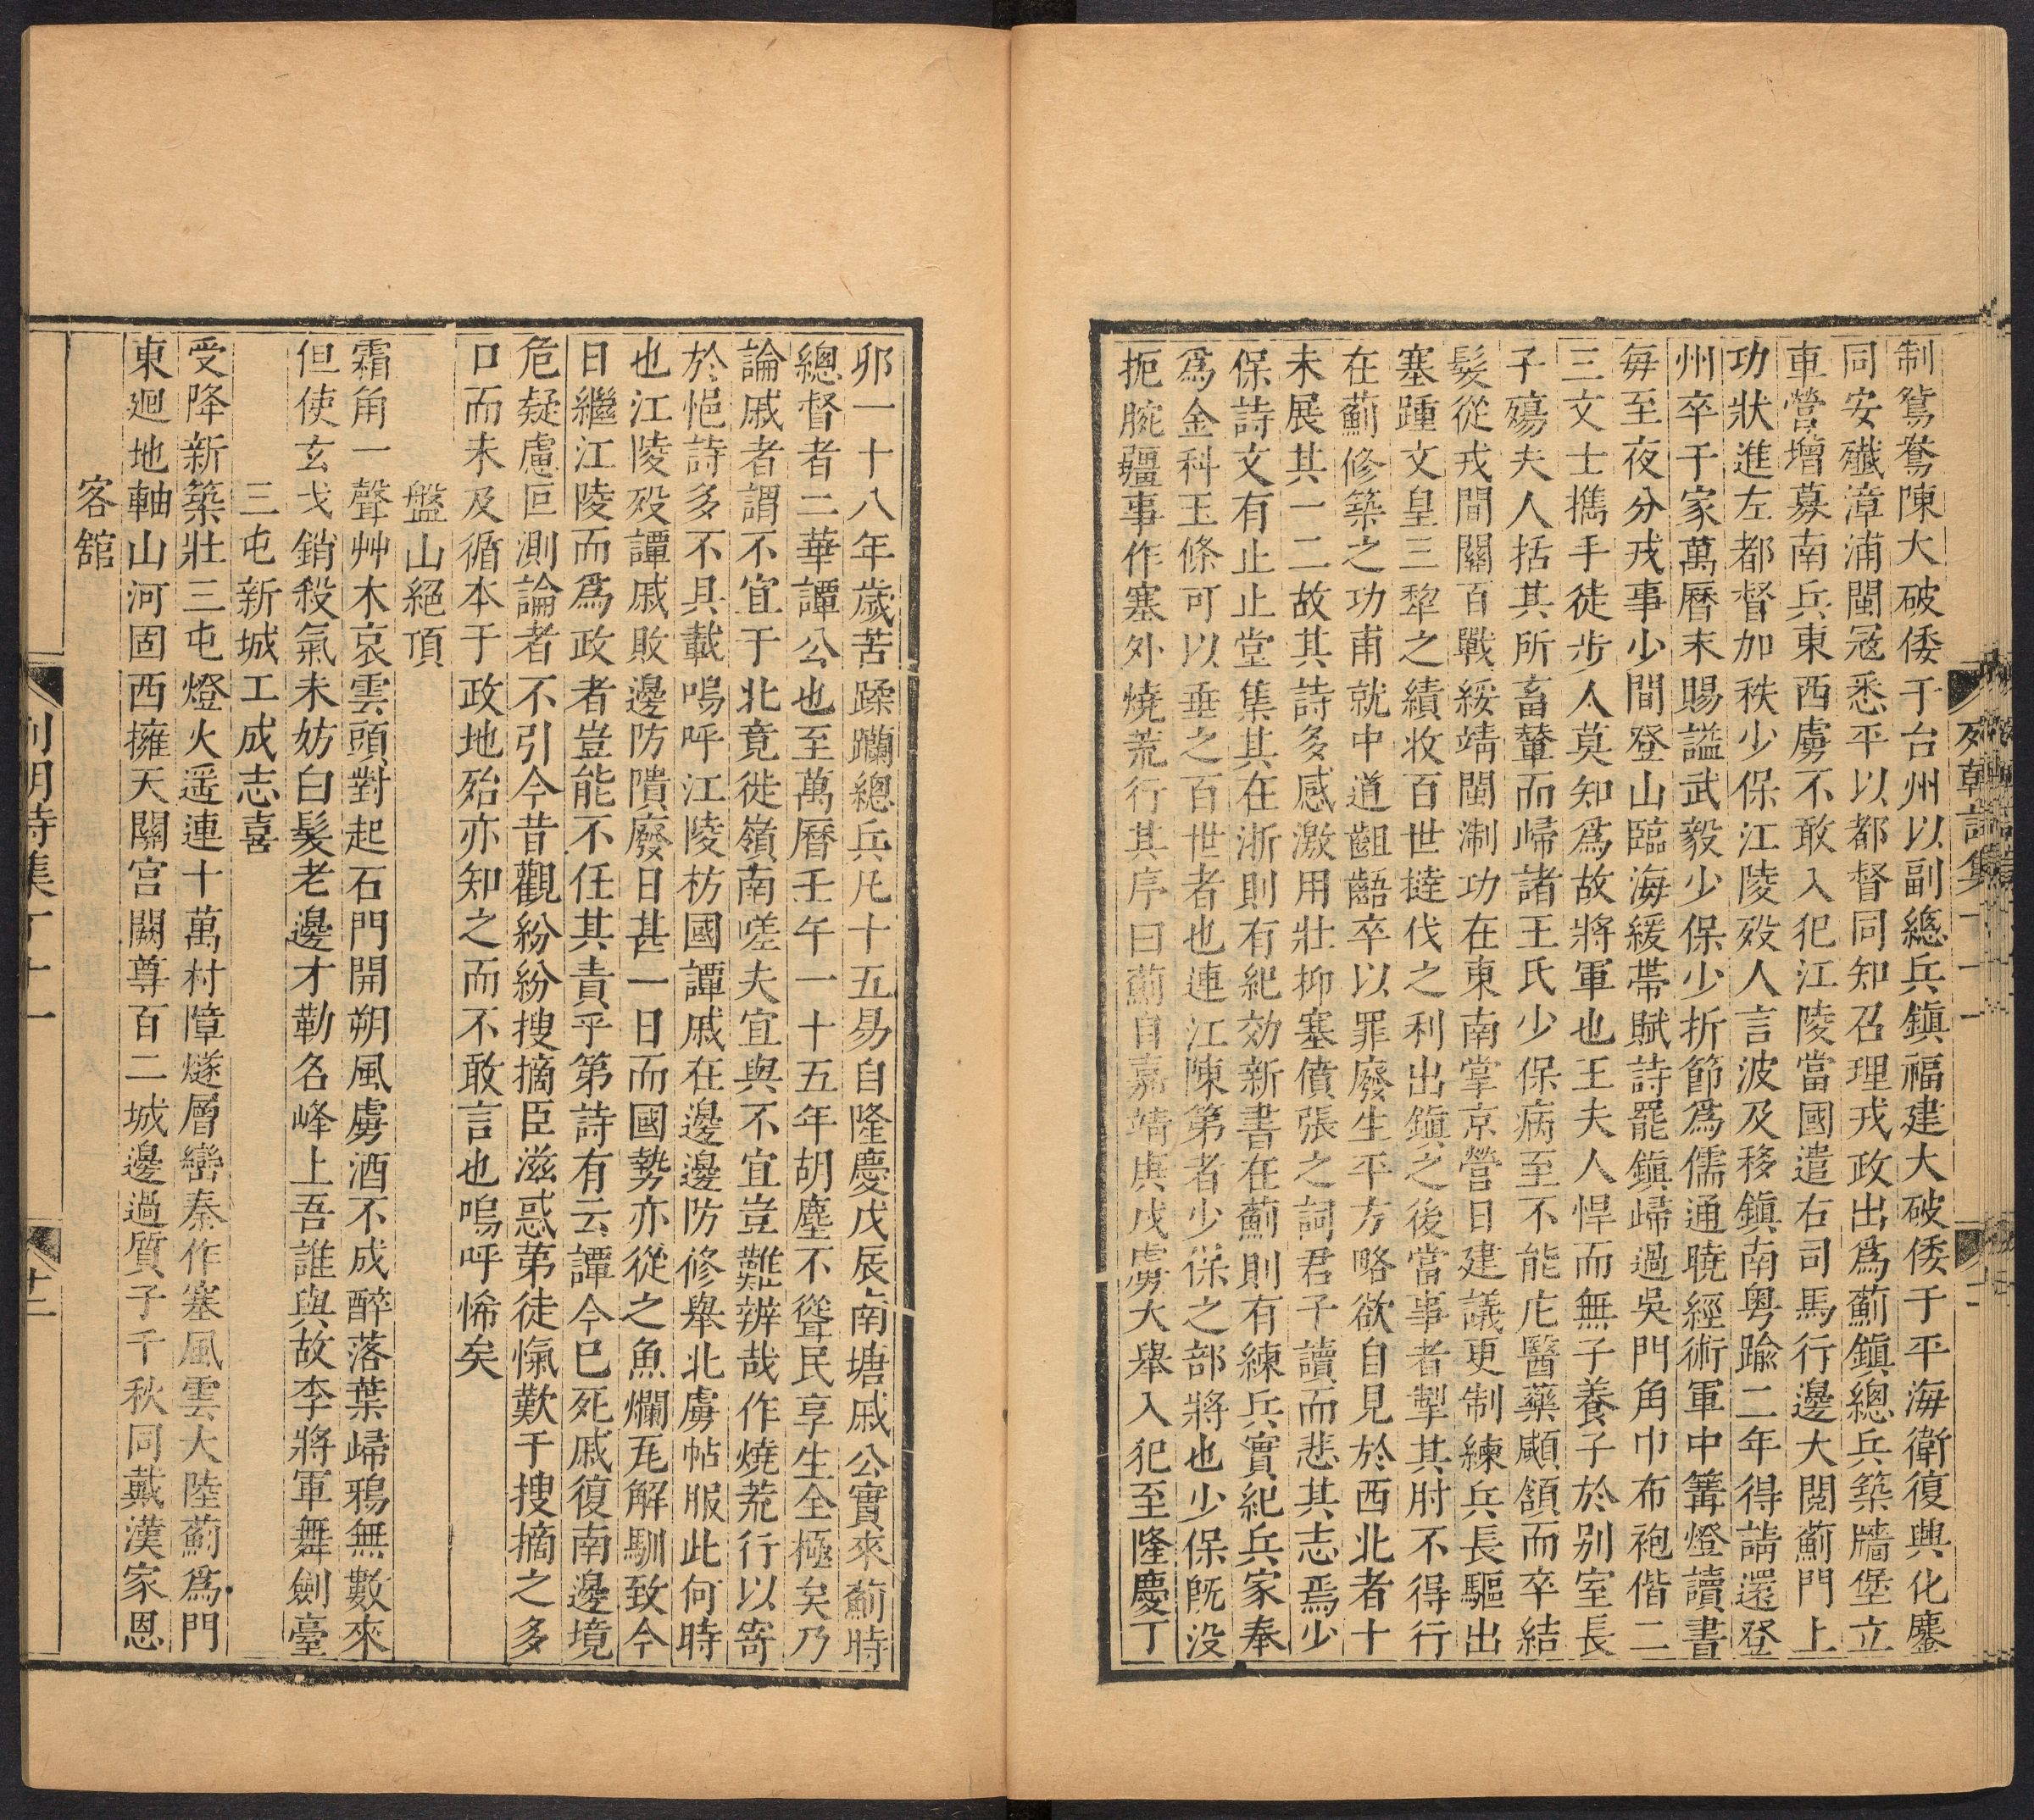 制鴛鴦陳大破倭于台州以副總兵鎮福建大破倭于平海衛復興化鏖
同安殲漳浦閩冦悉平以都督同知召理戎政出爲薊鎮總兵築牆堡立
車營增募南兵東西虜不敢入犯江陵當國遣右司馬行邊大閱薊門上
功狀進左都督加秩少保江陵歿人言波及移鎮南粵踰二年得請還登
州卒于家萬曆末賜謚武毅少保少折節爲儒通曉經術軍中篝燈讀書
每至夜分戎事少間登山臨海緩帶賦詩罷鎮歸過吳門角巾布袍偕二
三文士攜手徒步人莫知爲故將軍也王夫人悍而無子養子於別室長
子殤夫人括其所畜輦而歸諸王氏少保病至不能庀醫藥顑頷而卒結
髮從戎間關百戰綏靖閩淛功在東南掌京營日建議更制練兵長驅出
塞踵文皇三犂之績收百世撻伐之利出鎮之後當事者掣其肘不得行
在薊修築之功甫就中道齟齬卒以罪廢生平方略欲自見於西北者十
未展其一二故其詩多感激用壯抑塞僨張之詞君子讀而悲其志焉少
保詩文有止止堂集其在浙則有紀効新書在薊則有練兵實紀兵家奉
爲金科玉條可以垂之百世者也連江陳第者少保之部將也少保旣没
扼腕疆事作塞外燒荒行其序曰薊自嘉靖庚戌虜大舉入犯至隆慶丁
列朝詩集丁十一
卯一十八年歲苦蹂躪總兵凡十五易自隆慶戊辰南塘戚公實來薊時
總督者二華譚公也至萬曆壬午一十五年胡塵不聳民享生全極矣乃
論戚者謂不宜于北竟徙嶺南嗟夫宜與不宜豈難辨哉作燒荒行以寄
於悒詩多不具載嗚呼江陵枋國譚戚在邊邊防修舉北虜帖服此何時
也江陵歿譚戚敗邊防隤廢日甚一日而國勢亦從之魚爛瓦解馴致今
日繼江陵而爲政者豈能不任其責乎第詩有云譚今已死戚復南邊境
危疑慮叵測論者不引今昔觀紛紛搜摘臣滋惑第徒愾歎于搜摘之多
口而未及循本于政地殆亦知之而不敢言也嗚呼悕矣
盤山絕頂
霜角一聲艸木哀雲頭對起石門開朔風虜酒不成醉落葉歸鴉無數來
但使玄戈銷殺氣未妨白髮老邊才勒名峰上吾誰與故李將軍舞劍臺
三屯新城工成志喜
受降新築壯三屯燈火遥連十萬村障燧層巒秦作塞風雲大陸薊爲門
東廻地軸山河固西擁天關宫闕尊百二城邊過質子千秋同戴漢家恩
客舘
列朝詩集丁十一
十二